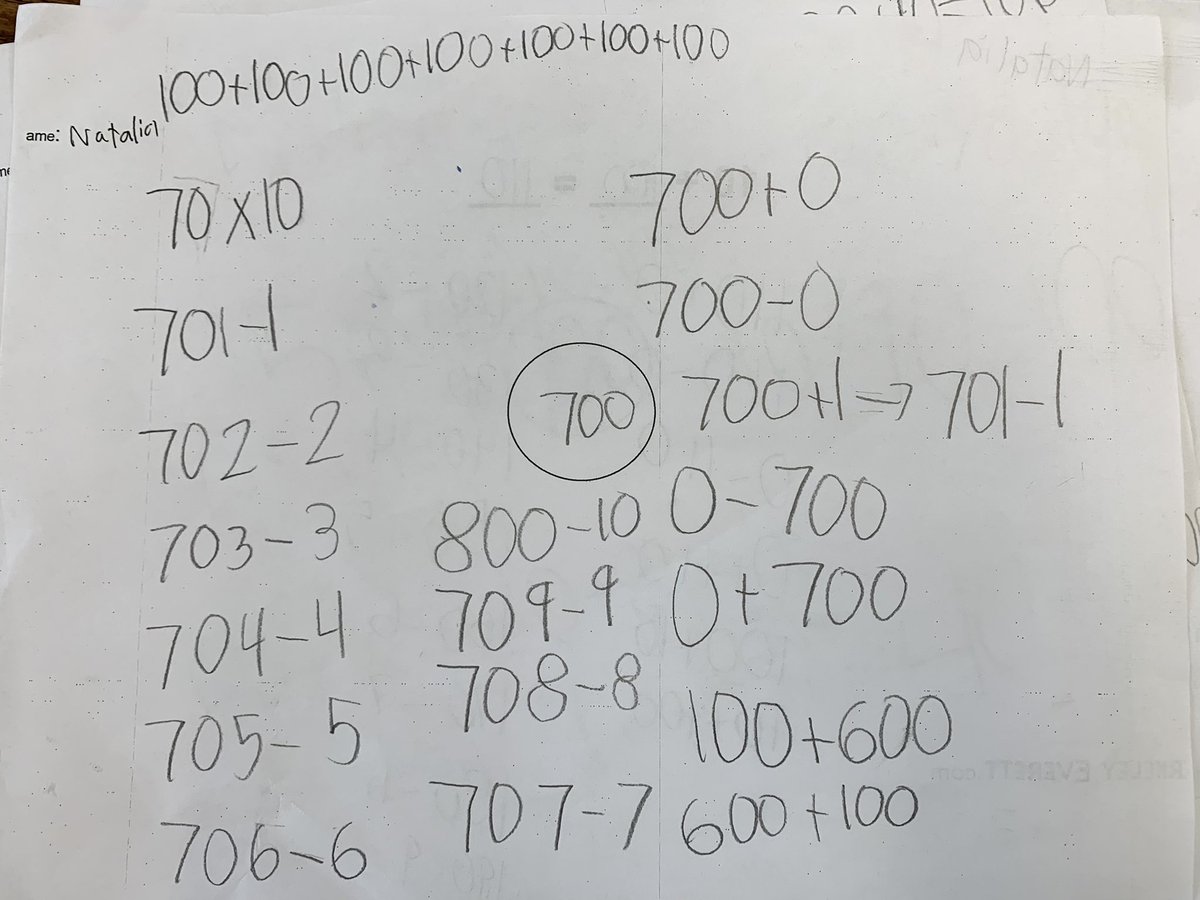 100+100+100+100+100+100+100
ame: Natalia
70×10
701-1
702-2
703-3
704-4
705-5
706-6
700
800-10
709-9
708-8
707-7
700+0
700-0
700+1=>701-1
0-700
0+700
100+600
600+100
Natalia
KELLEY EVERETT.com